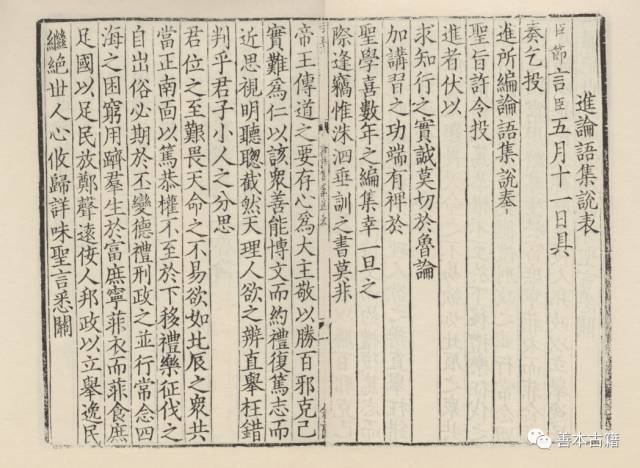 進論語集說表
臣節言臣五月十一日具
奏乞投
進所編論語集說奏
聖旨許令投
進者伏以
求知行之實誠莫切於魯論
加講習之功端有裨於
聖學喜數年之編集幸一旦之
際逢竊惟洙泗垂訓之書莫非
帝王傳道之要存心爲大王敬以勝百邪克己
實難爲仁以該衆善能博文而約禮復篤志而
近思視明聽聦截然天理人欲之辨直舉枉錯
判乎君子小人之分思
君位之至艱畏天命之不易欲如北辰之衆共
當正南面以篤恭權不至於下移禮樂征伐之
自出俗必期於丕變德禮刑政之並行常念四
海之困窮用躋羣生於富庶寧菲衣而菲食庶
足國以足民放鄭聲遠佞人邦政以立舉逸民
繼絕世人心攸歸詳味聖言悉關
善本古籍